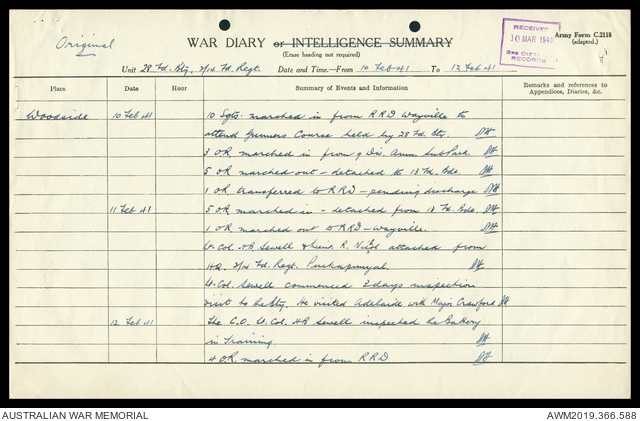 Original
WAR DIARY or INTELLIGENCE SUMMARY
(Erase heading not required)
RECEIVED
10 MAR 1940
RECORDS
Army Form C.2118
(adapted.)
Unit 28 Fd. Bty, 2/14 Fd. Regt. Date and Time—From 10 Feb 41 To 12 Feb 41
Place Date Hour Summary of Events and Information Remarks and references to Appendices, Diaries, &c.
Woodside 10 Feb 41 10 Sgts. marched in from RRD Wayville to
attend Gunners Course held by 28 Fd. Bty.
3 O.R. marched in from 9 Div. Amm Sub Park.
5 O.R. marched out - detached to 13 Fd. Bde.
1 O.R. transferred to RRD - pending discharge
11 Feb 41 5 O.R. marched in - detached from 13 Fd. Bde.
1 O.R. marched out to RRD - Wayville.
Lt. Col. HB Sewell & Lieut. R. attached from
HQ. 2/14 Fd. Regt. Puckapunyal.
Lt. Col. Sewell commenced 2 days inspection
visit to the Bty. He visited Adelaide with Major Crawford
12 Feb 41 The C.O. Lt. Col. HB Sewell inspected the Battery
in Training
4 O.R. marched in from RRD
AUSTRALIAN WAR MEMORIAL
AWM2019.366.588